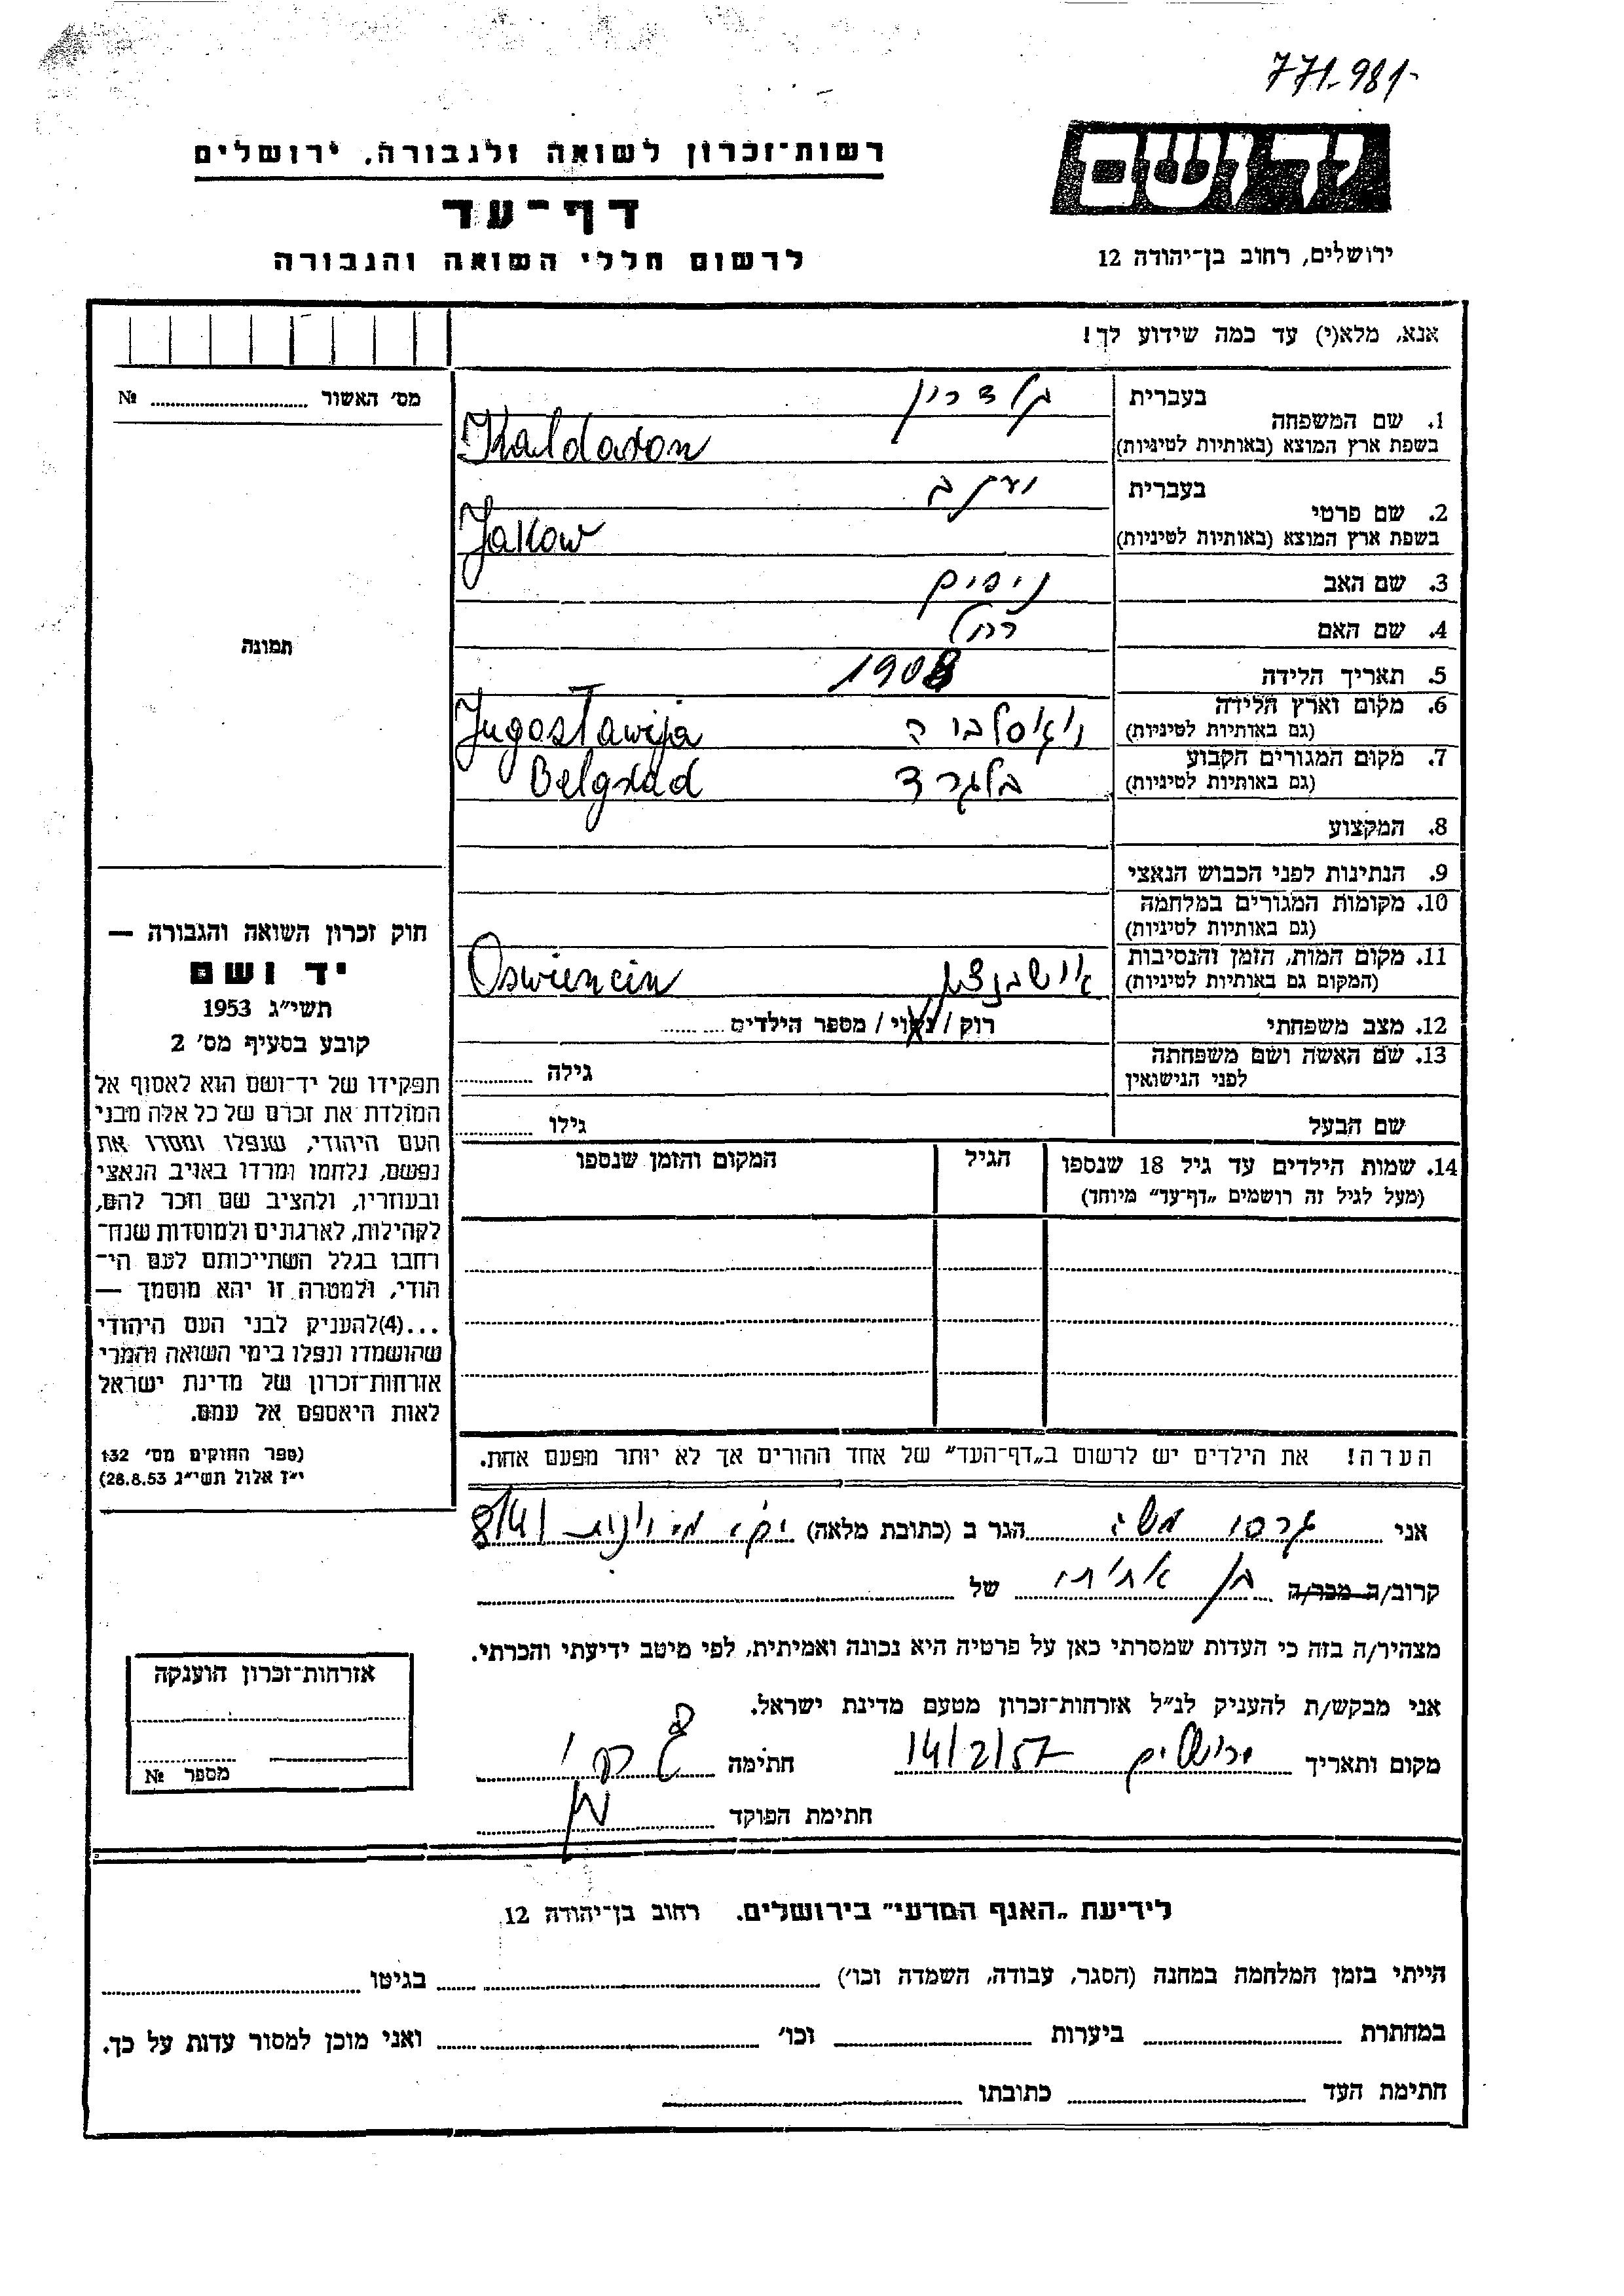 771.981-
רשות־זכרון לשואה ולגבורה, ירושלים
יד ושם
דף־עד
ירושלים, רחוב בן־יהודה 12
לרשום חללי השואה והגבורה
אנא, מלא(י) עד כמה שידוע לך!
מס׳ האשור № 
1. שם המשפחה
בעברית קלדרון
בשפת ארץ המוצא (באותיות לטיניות) Kaldaron
2. שם פרטי
בעברית יעקב
בשפת ארץ המוצא (באותיות לטיניות) Jakow
3. שם האב ניסים
4. שם האם רחל
5. תאריך הלידה 1908
6. מקום וארץ הלידה יוגוסלביה Jugoslawija
(גם באותיות לטיניות)
7. מקום המגורים הקבוע בלגרד Belgrad
(גם באותיות לטיניות)
8. המקצוע
9. הנתינות לפני הכבוש הנאצי
10. מקומות המגורים במלחמה
(גם באותיות לטיניות)
11. מקום המות, הזמן והנסיבות Oswiencin
(המקום גם באותיות לטיניות)
12. מצב משפחתי רוק / נשוי / מספר הילדים
13. שם האשה ושם משפחתה גילה
לפני הנישואין
שם הבעל גילו
14. שמות הילדים עד גיל 18 שנספו הגיל המקום והזמן שנספו
(מעל לגיל זה רושמים „דף־עד״ מיוחד)
תמונה
חוק זכרון השואה והגבורה —
יד ושם
תשי״ג 1953
קובע בסעיף מס׳ 2
תפקידו של יד־ושם הוא לאסוף אל
המולדת את זכרם של כל אלה מבני
העם היהודי, שנפלו ומסרו את
נפשם, נלחמו ומרדו באויב הנאצי
ובעוזריו, ולהציב שם וזכר להם,
לקהילות, לארגונים ולמוסדות שנח־
רחבו בגלל השתייכותם לעם הי־
הודי, ולמטרה זו יהא מוסמך —
...(4)להעניק לבני העם היהודי
שהושמדו ונפלו בימי השואה והמרי
אזרחות־זכרון של מדינת ישראל
לאות היאספם אל עמם.
(ספר החוקים מס׳ 132
י״ז אלול תשי״ג 28.8.53)
הערה! את הילדים יש לרשום ב„דף־העד״ של אחד ההורים אך לא יותר מפעם אחת.
אני משה הגר ב (כתובת מלאה) 8/41
קרוב/ה מכר/ה בן אחותו של
מצהיר/ה בזה כי העדות שמסרתי כאן על פרטיה היא נכונה ואמיתית, לפי מיטב ידיעתי והכרתי.
אני מבקש/ת להעניק לנ״ל אזרחות־זכרון מטעם מדינת ישראל.
מקום ותאריך ירושלים 14/2/57 חתימה
חתימת הפוקד
אזרחות־זכרון הוענקה
מספר №
לידיעת „האגף המדעי״ בירושלים. רחוב בן־יהודה 12
הייתי בזמן המלחמה במחנה (הסגר, עבודה, השמדה וכו׳) בגיטו
במחתרת ביערות וכו׳ ואני מוכן למסור עדות על כך.
חתימת העד כתובתו